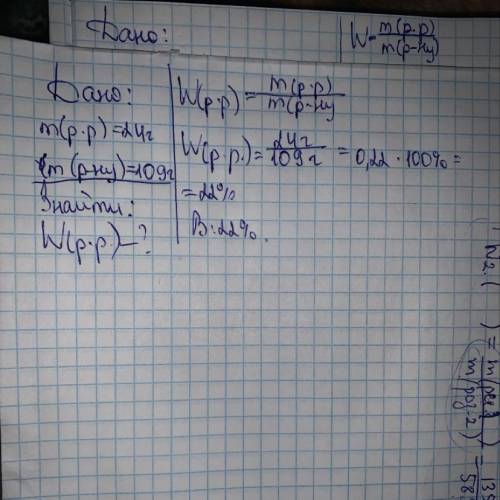 Дано:
W = m(р.р) / m(р-ну)
Дано:
m(р.р)=24г
m(р-ну)=109г
Знайти:
W(р.р.)-?
W(р.р) = m(р.р) / m(р-ну)
W(р.р.) = 24г / 109г = 0,22 · 100% =
= 22%
В: 22%.